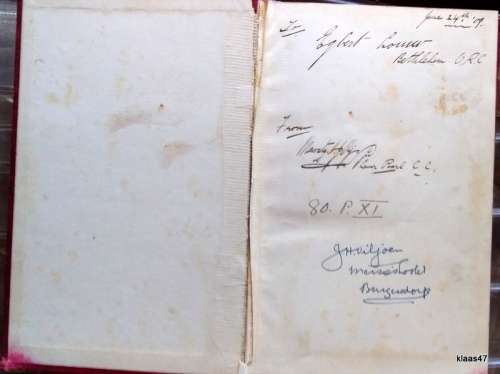 June 24th '09.
To
Egbert Louw
Bethlehem O.R.C
From
Paarl C.C.
80. P. XI
JH Viljoen
Meisieskool
Burgersdorp
klaas47